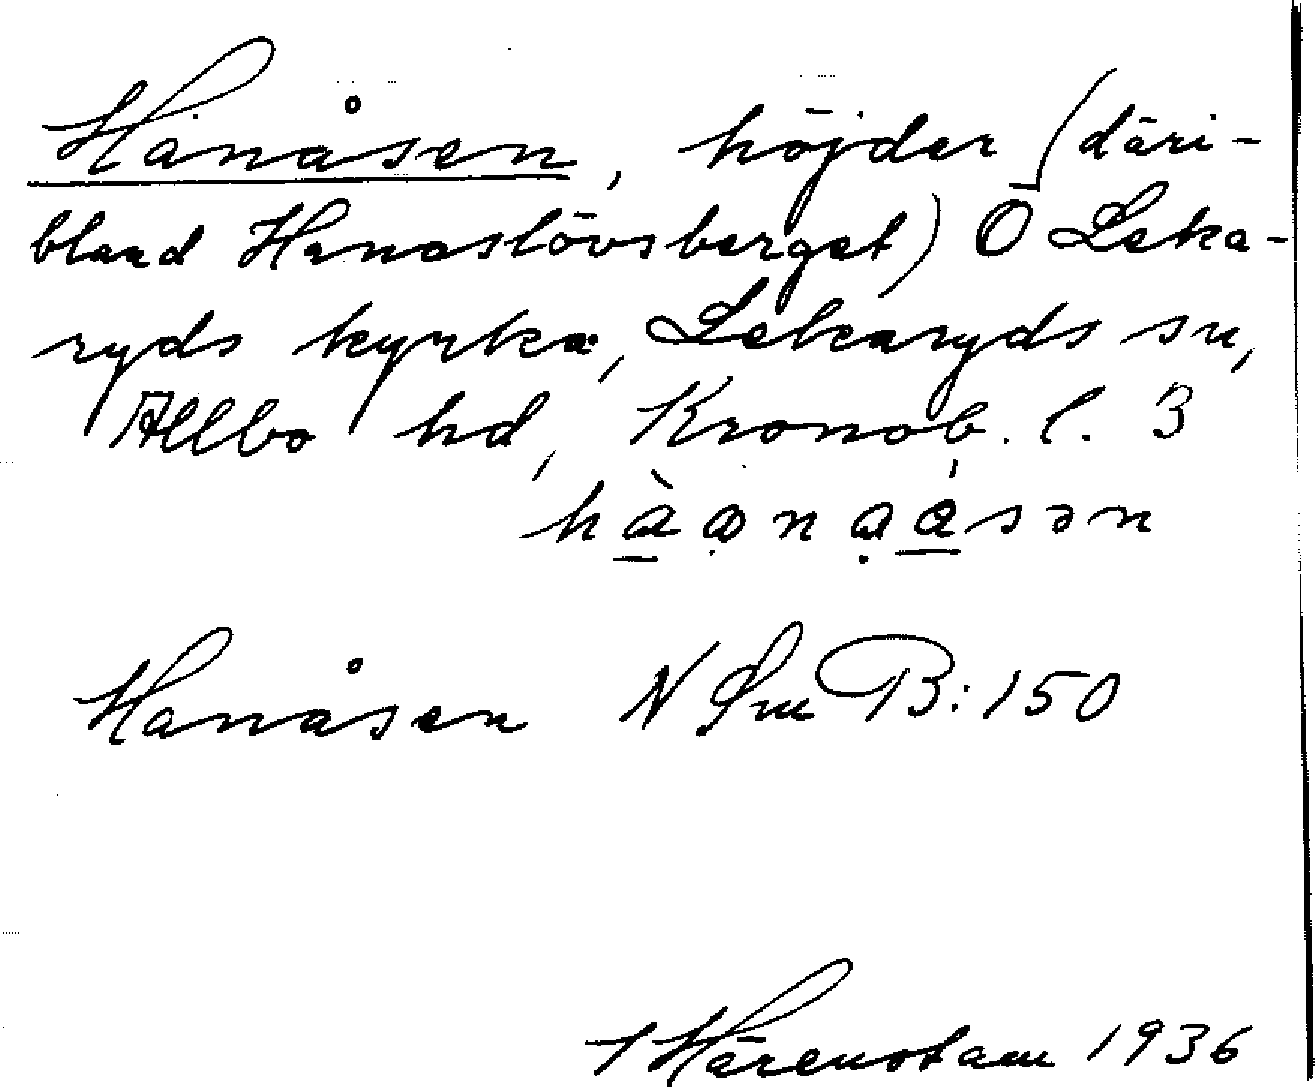 Hanåsen, höjder (däri-
bland Hanaslövsberget) Ö Leka-
ryds kyrka, Lekaryds sn,
Allbo hd, Kronob. l. 3
Hanåsen N Sm B:150
Härenstam 1936